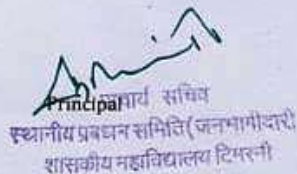 Principal
प्राचार्य सचिव
स्थानीय प्रबंधन समिति (जनभागीदारी)
शासकीय महाविद्यालय टिमरनी